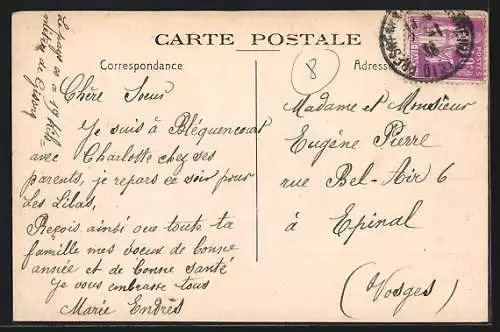 CARTE POSTALE
Correspondance
Adresse
8
à 19 Kil
de Gisors
Chère Soeur
Je suis à Bléquencourt
avec Charlotte chez ses
parents, je repars ce soir pour
Les Lilas,
Reçois ainsi que toute ta
famille mes voeux de bonne
année et de bonne santé
Je vous embrasse tous
Marie Endrès
Madame et Monsieur
Eugène Pierre
rue Bel-Air 6
à Epinal
(Vosges)
POSTES